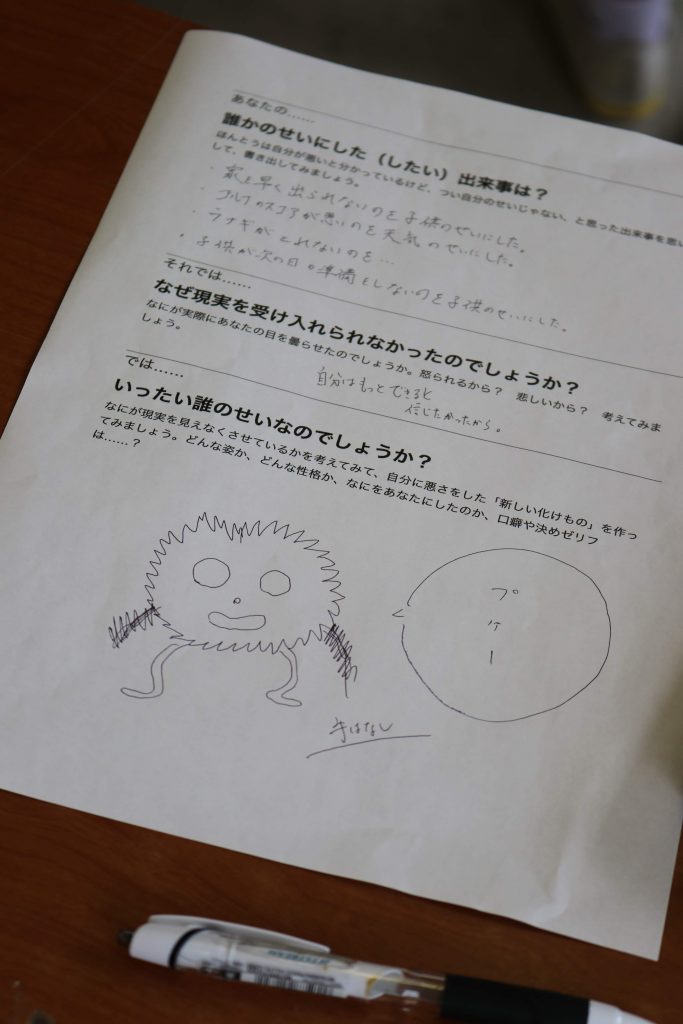 あなたの……
誰かのせいにした（したい）出来事は？
ほんとうは自分が悪いと分かっているけど、つい自分のせいじゃない、と思った出来事を思い
して、書き出してみましょう。
・家を早く出られないのを子供のせいにした。
・ゴルフのスコアが悪いのを天気のせいにした。
・ウナギがとれないのを…
・子供が次の日の準備をしないのを子供のせいにした。
それでは……
なぜ現実を受け入れられなかったのでしょうか？
なにが実際にあなたの目を曇らせたのでしょうか。怒られるから？　悲しいから？　考えてみま
しょう。
自分はもっとできると
信じたかったから。
では……
いったい誰のせいなのでしょうか？
なにが現実を見えなくさせているかを考えてみて、自分に悪さをした「新しい化けもの」を作っ
てみましょう。どんな姿か、どんな性格か、なにをあなたにしたのか、口癖や決めゼリフ
は……？
プ
ケ
ー
手はなし